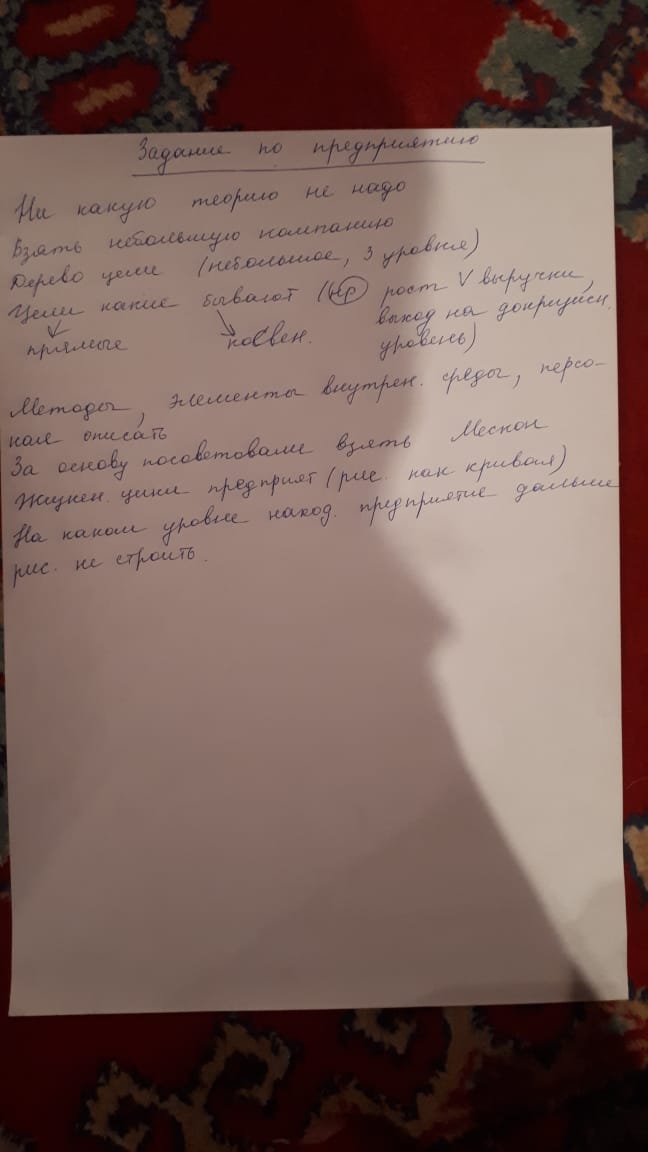 Задание по предприятию
Ни какую теорию не надо
Взять небольшую компанию
Дерево цели (небольшое, 3 уровня)
Цели какие бывают (нр рост V выручки,
прямые косвен. выход на докризисн.
уровень)
Методы, элементы внутрен. среды, персо-
нал описать
За основу посоветовали взять Мескон
Жизнен. цикл предприят (рис. как кривая)
На каком уровне наход. предприятие дальше
рис. не строить.